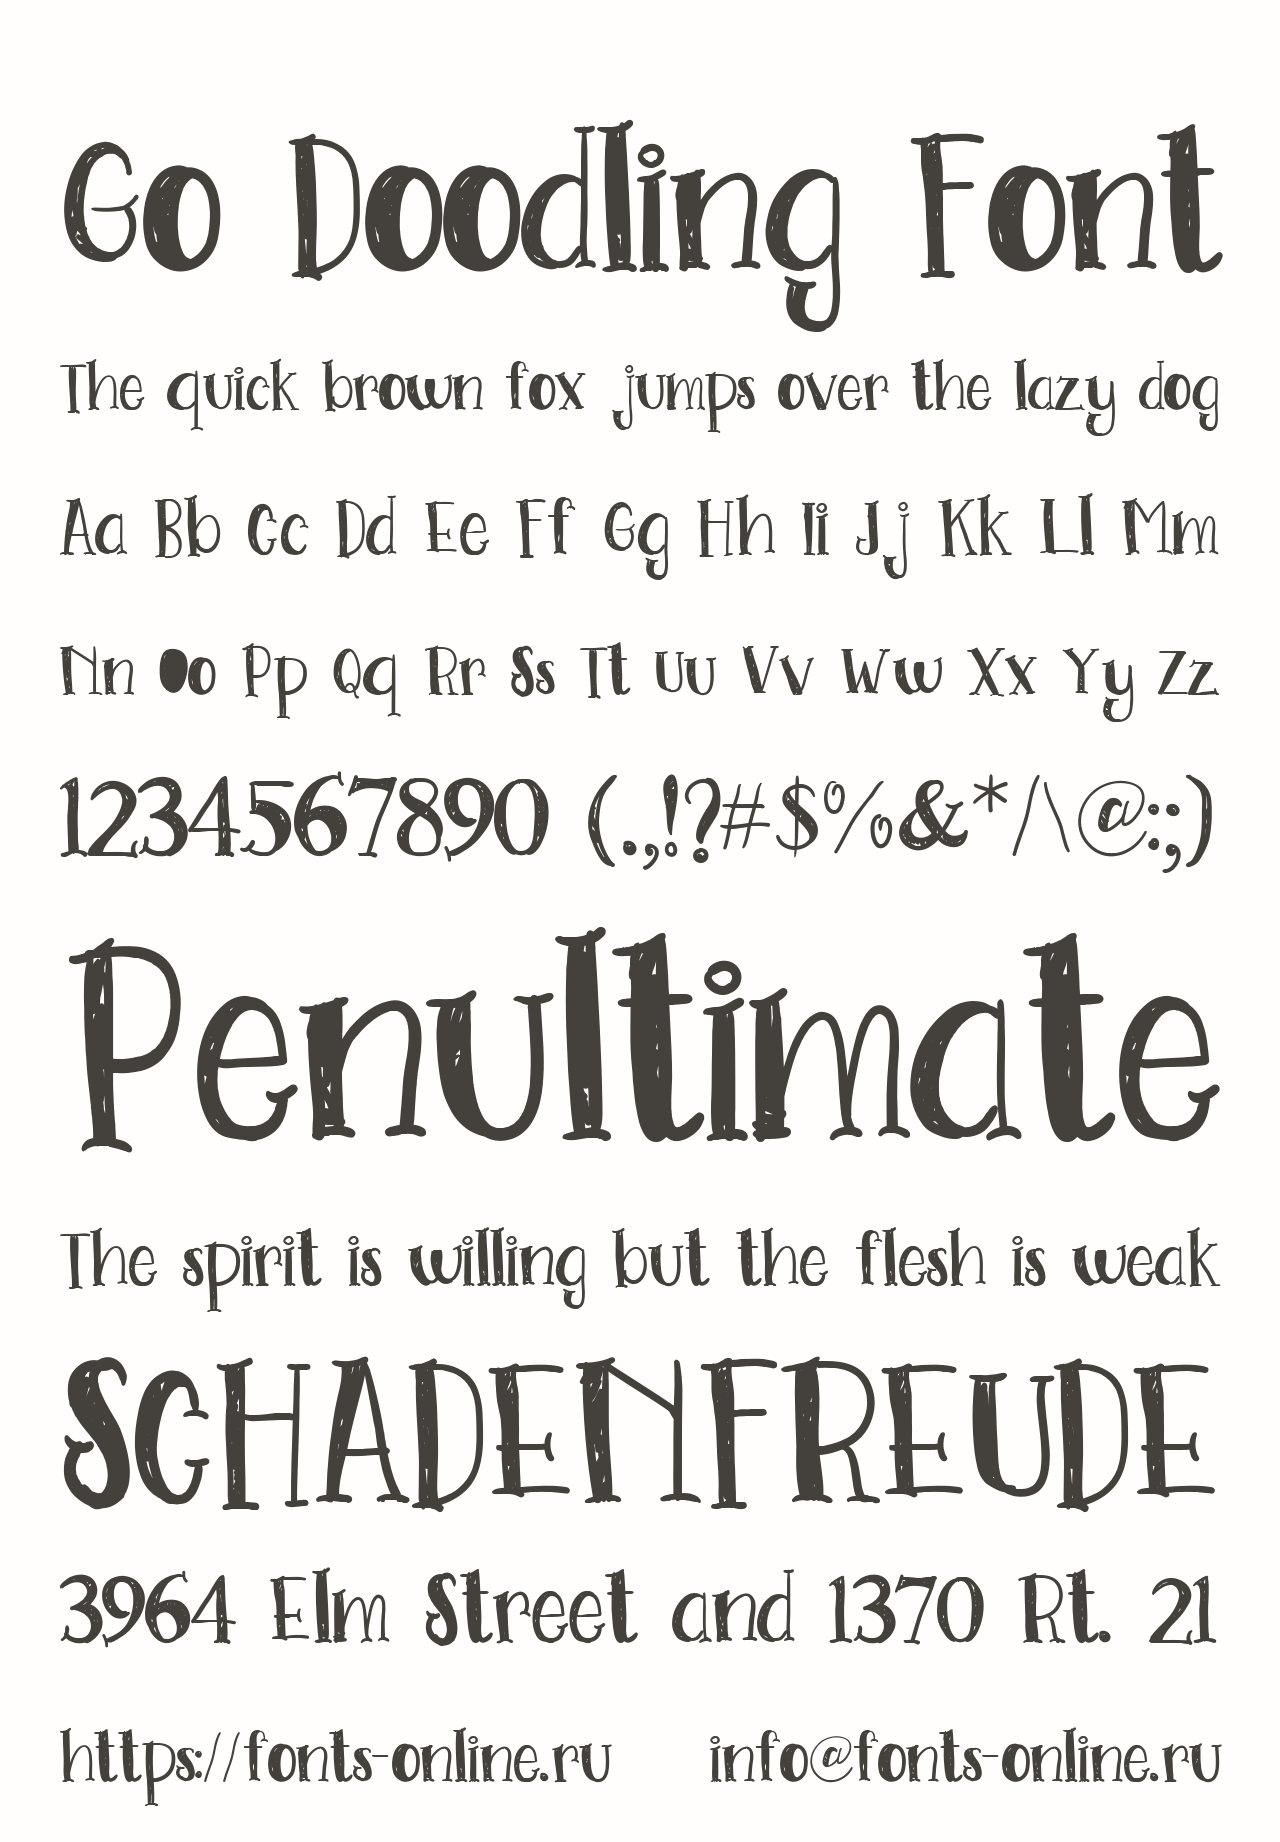 Go Doodling Font
The quick brown fox jumps over the lazy dog
Aa Bb Cc Dd Ee Ff Gg Hh Ii Jj Kk Ll Mm
Nn Oo Pp Qq Rr Ss Tt Uu Vv Ww Xx Yy Zz
1234567890 (.,!?#$%&*/\@:;)
Penultimate
The spirit is willing but the flesh is weak
SCHADENFREUDE
3964 Elm Street and 1370 Rt. 21
https://fonts-online.ru info@fonts-online.ru